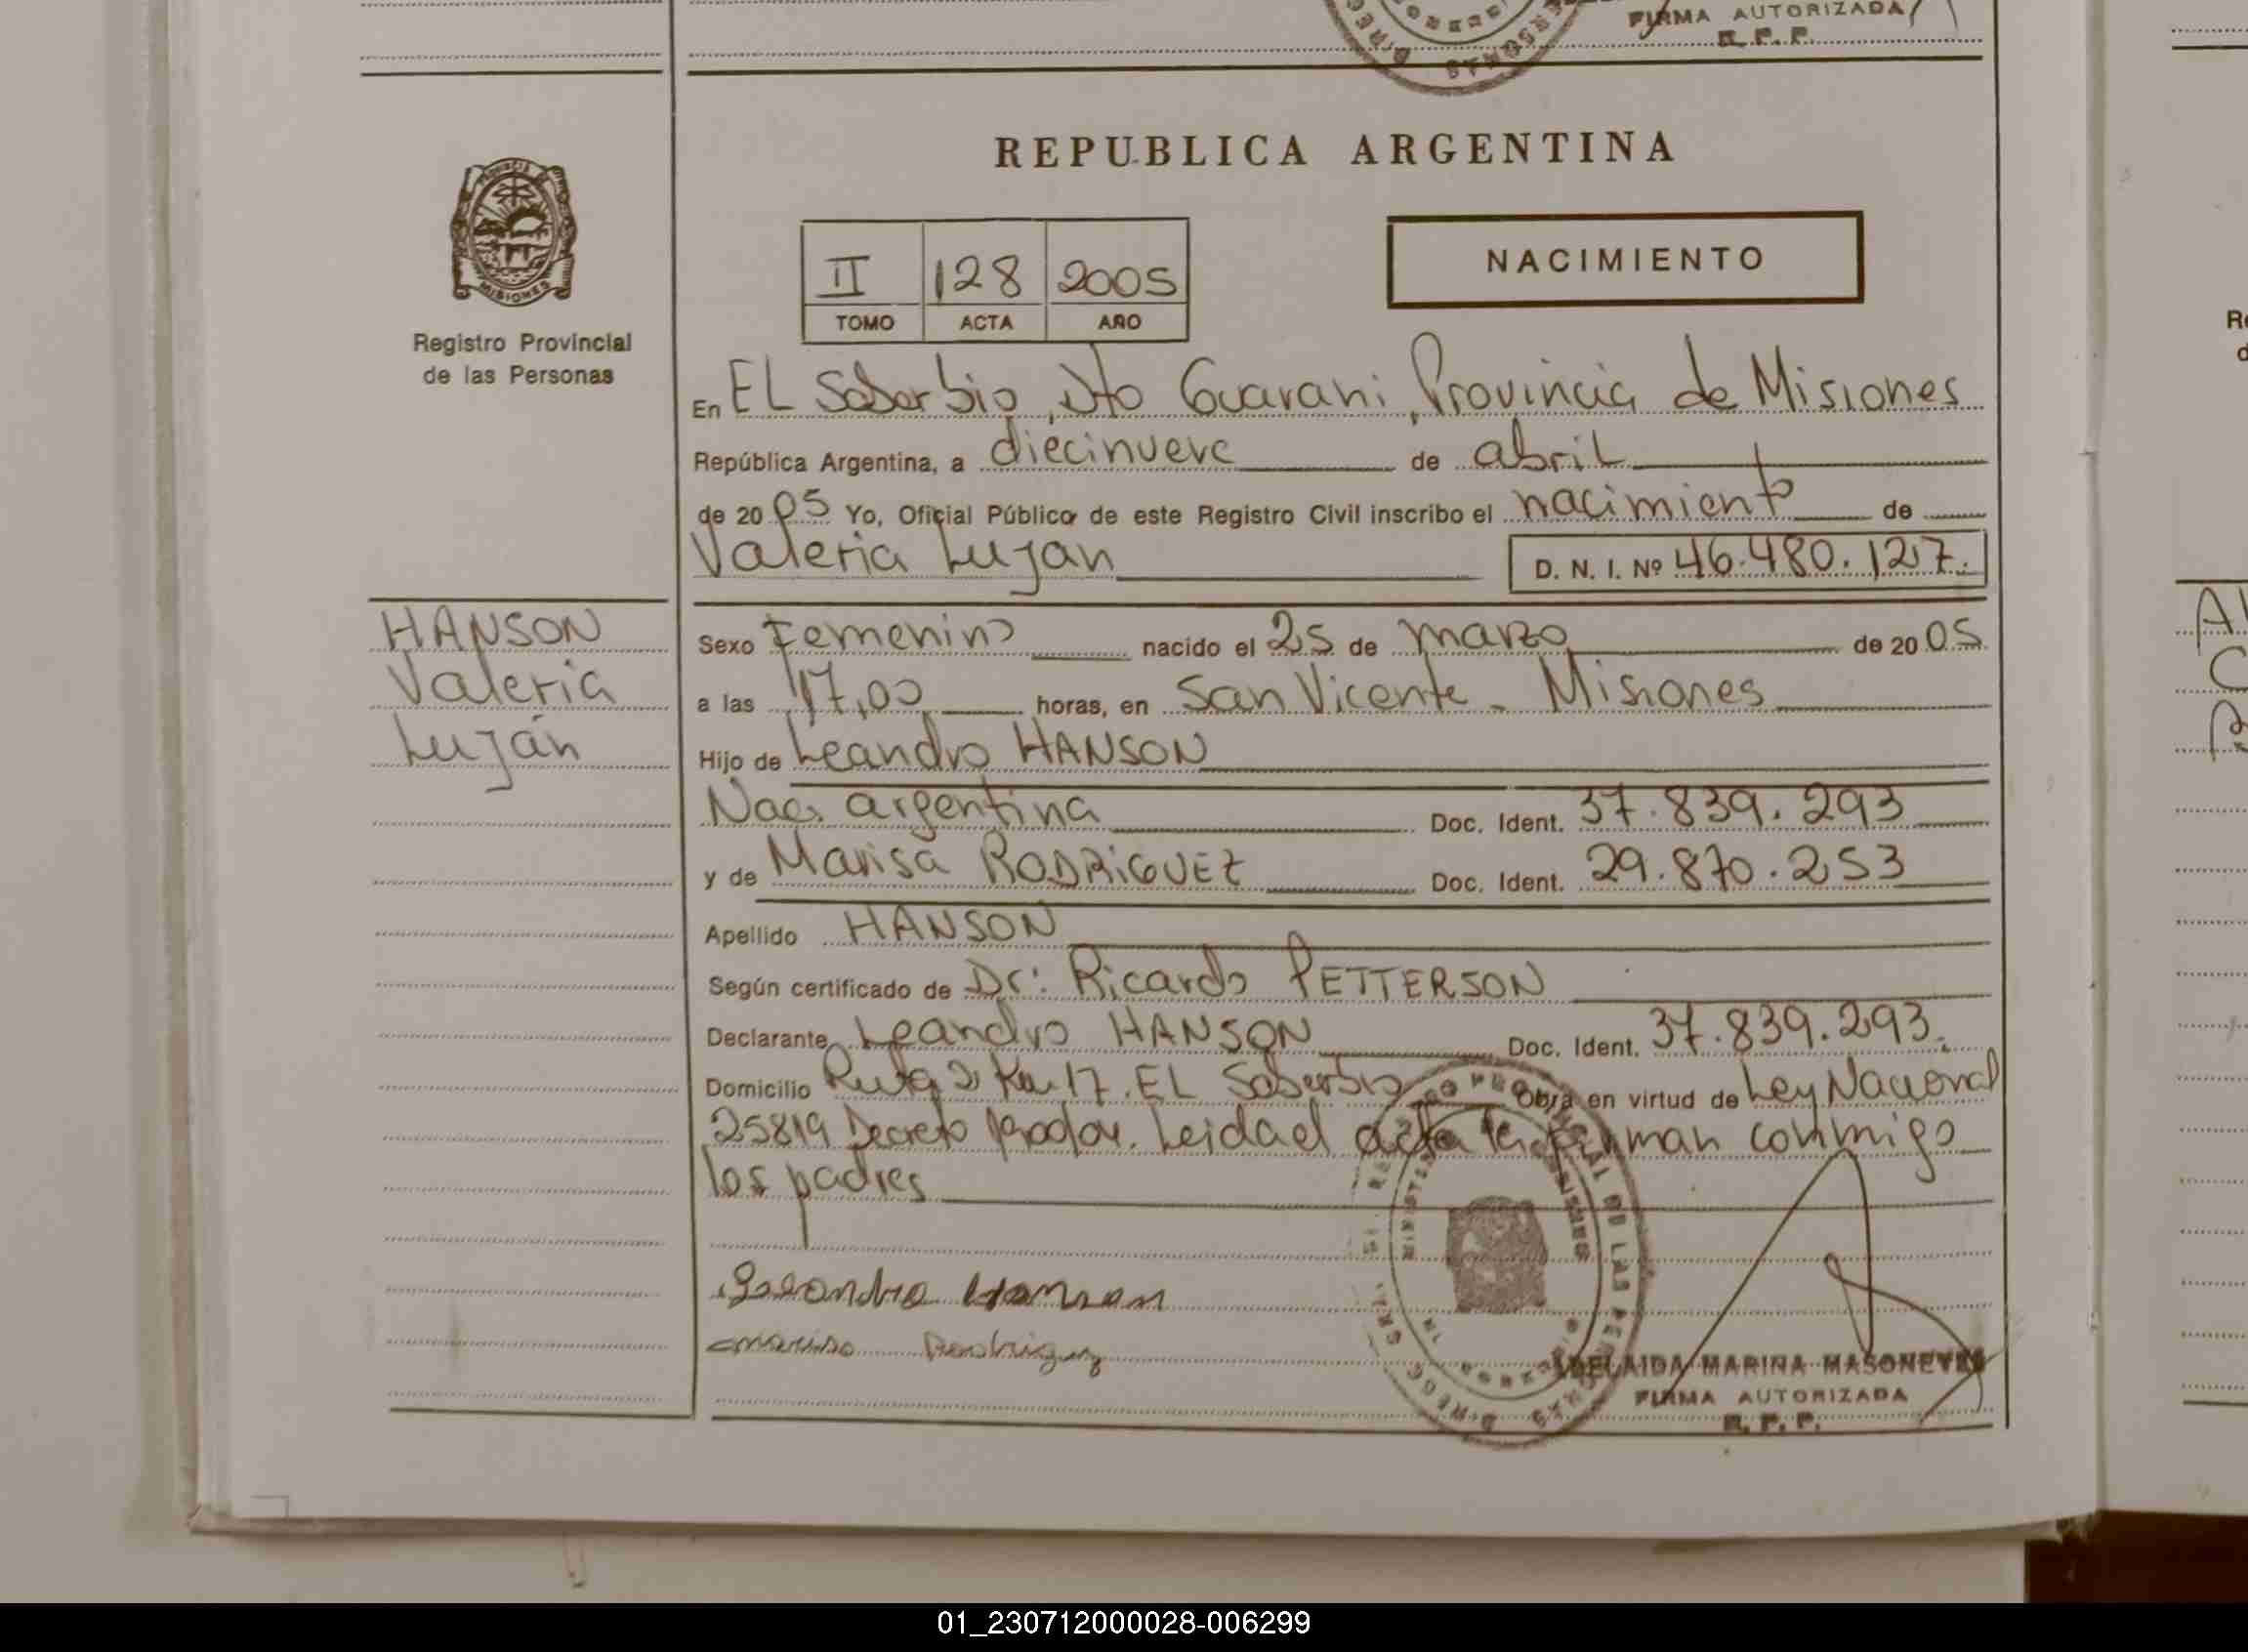 FIRMA AUTORIZADA
R. P. P.
REPUBLICA ARGENTINA
PROVINCIA
MISIONES
Registro Provincial
de las Personas
II 128 2005
TOMO ACTA AÑO
NACIMIENTO
En EL Soberbio, Dto Guarani, Provincia de Misiones
República Argentina, a diecinueve de abril
de 20 05 Yo, Oficial Público de este Registro Civil inscribo el nacimiento de
Valeria Lujan D. N. I. Nº 46.480.127.
HANSON
Valeria
Luján
Sexo Femenino nacido el 25 de marzo de 20 05
a las 17,00 horas, en San Vicente - Misiones
Hijo de Leandro HANSON
Nac. argentina Doc. Ident. 37.839.293
y de Marisa RODRIGUEZ Doc. Ident. 29.870.253
Apellido HANSON
Según certificado de Dr: Ricardo PETTERSON
Declarante Leandro HANSON Doc. Ident. 37.839.293.
Domicilio Ruta 2 Km 17. EL Soberbio Obra en virtud de Ley Nacional
25819 Decreto Leida el acta la firman conmigo
los padres
Leandro Hanson
marisa Rodriguez
ADELAIDA MARINA
FIRMA AUTORIZADA
R. P. P.
01_230712000028-006299